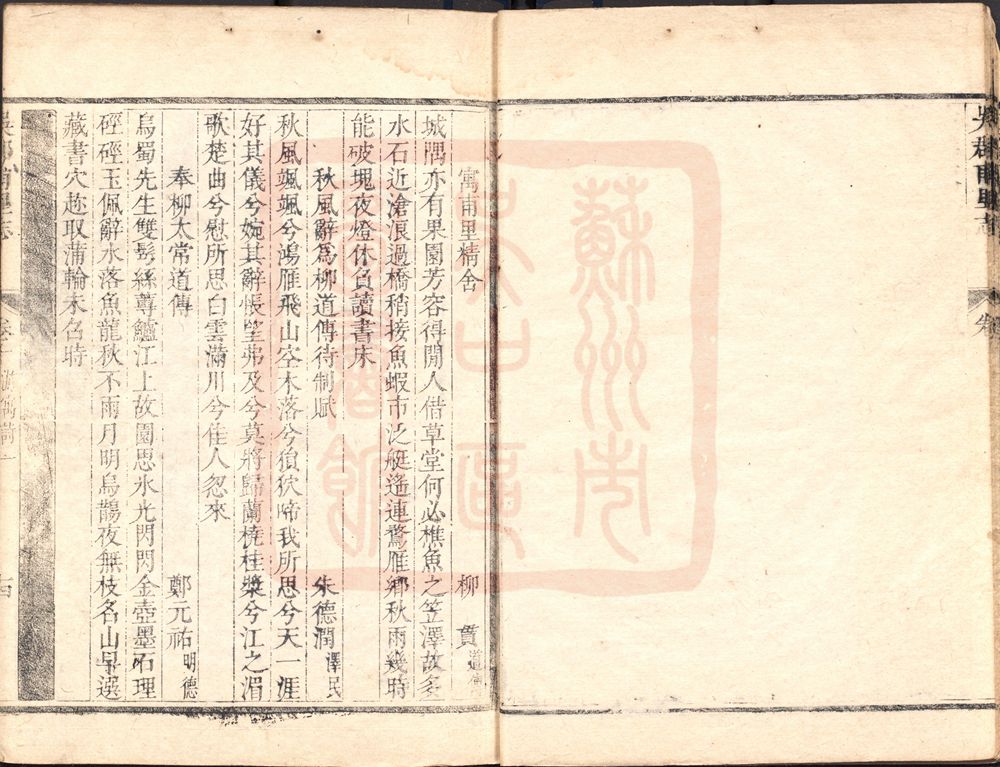 吳郡甫里志
寓甫里精舍　柳　貫道傳
城隅亦有果園芳容得閒人借草堂何必樵魚之笠澤故多
水石近滄浪過橋稍接魚蝦市泛艇遙連鶩雁鄉秋雨幾時
能破塊夜燈休負讀書床
秋風辭爲柳道傳待制賦　朱德潤澤民
秋風颯颯兮鴻雁飛山空木落兮猿狖啼我所思兮天一涯
好其儀兮婉其辭悵望弗及兮莫將歸蘭橈桂槳兮江之湄
歌楚曲兮慰所思白雲滿川兮佳人忽來
奉柳太常道傳　鄭元祐明德
烏蜀先生雙髩絲蓴鱸江上故園思氷光閃閃金壺墨石理
硜硜玉佩辭水落魚龍秋不雨月明烏鵲夜無枝名山早選
藏書穴趂取蒲輪未召時
吳郡甫里志　卷　十四
蘇州市
吳中區
圖書館